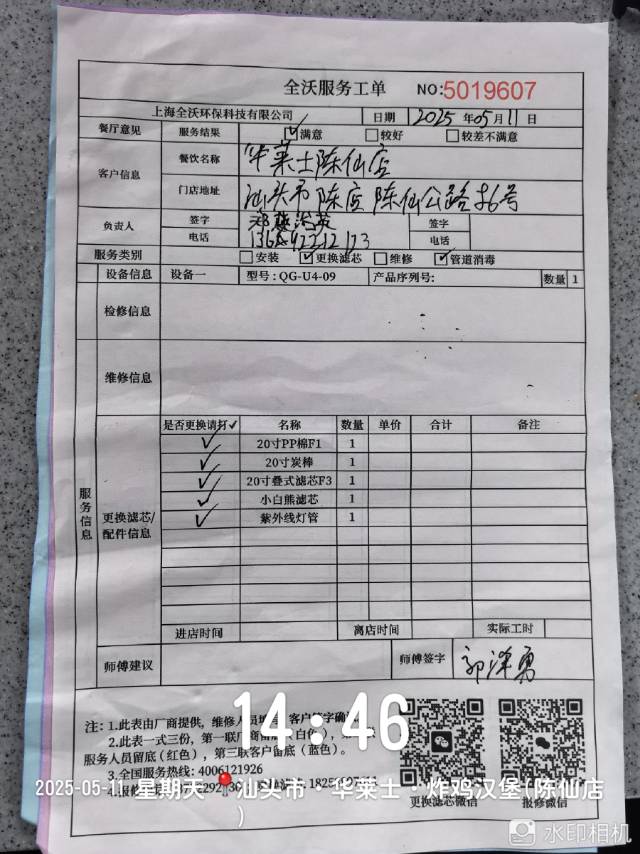 全沃服务工单 NO:5019607
上海全沃环保科技有限公司 日期 2025年05月11日
餐厅意见 服务结果 ☑满意 □较好 □较差不满意
客户信息 餐饮名称 华莱士陈仙店
门店地址 汕头市陈店陈仙公路36号
负责人 签字 签字
电话 电话
服务类别 □安装 ☑更换滤芯 □维修 ☑管道消毒
设备信息 设备一 型号:QG-U4-09 产品序列号: 数量 1
检修信息
维修信息
服务信息
更换滤芯/配件信息
是否更换请打✓ 名称 数量 单价 合计 备注
✓ 20寸PP棉F1 1
✓ 20寸炭棒 1
✓ 20寸叠式滤芯F3 1
✓ 小白熊滤芯 1
✓ 紫外线灯管 1
进店时间 离店时间 实际工时
师傅建议 师傅签字
注: 1.此表由厂商提供, 维修人员 客户签字确
2.此表一式三份, 第一联厂商留底(白色),
服务人员留底(红色), 第三联客户留底(蓝色)。
3.全国服务热线: 4006121926
更换滤芯微信 报修微信
14:46
2025-05-11 星期天 汕头市·华莱士·炸鸡汉堡(陈仙店
)
水印相机